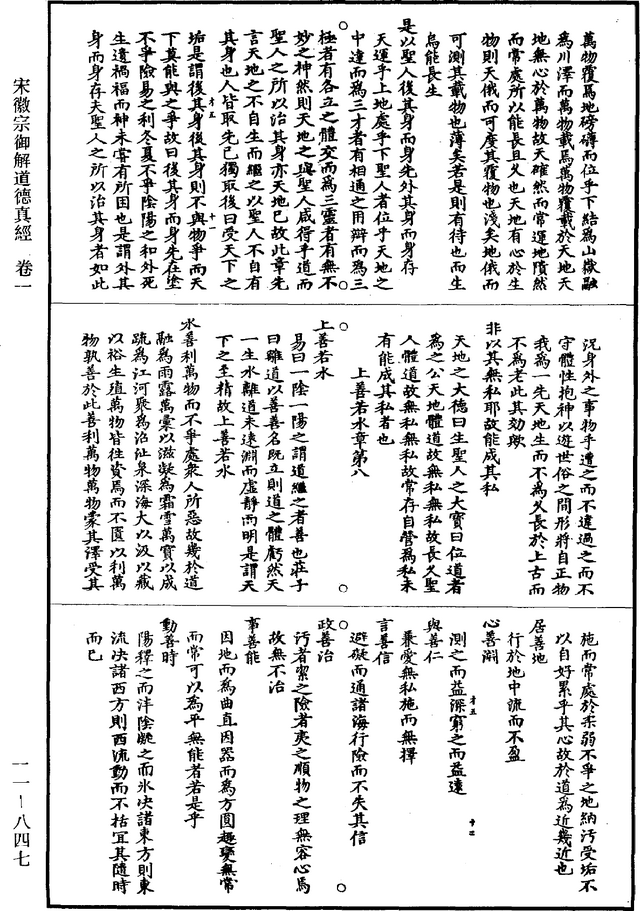 萬物覆焉地磅礴而位乎下結為山嶽融
為川澤而萬物載焉萬物覆載於天地天
地無心於萬物故天確然而常運地隤然
而常處所以能長且久也天地有心於生
物則天俄而可度其覆物也淺矣地俄而
可測其載物也薄矣若是則有待也而生
烏能長生
是以聖人後其身而身先外其身而身存
天運乎上地處乎下聖人者位乎天地之
中達而為三才者有相通之用辯而為三
極者有各立之體交而為三靈者有無不
妙之神然則天地之與聖人咸得乎道而
聖人之所以治其身亦天地已故此章先
言天地之不自生而繼之以聖人不自有
其身也人皆取先己獨取後曰受天下之
垢是謂後其身後其身則不與物爭而天
下莫能與之爭故曰後其身而身先在塗
不爭險易之利冬夏不爭陰陽之和外死
生遺禍福而神未嘗有所困也是謂外其
身而身存夫聖人之所以治其身者如此
才五
十一
況身外之事物乎遭之而不違過之而不
守體性抱神以遊世俗之間形將自正物
我為一先天地生而不為久長於上古而
不為老此其効歟
非以其無私耶故能成其私
天地之大德曰生聖人之大寶曰位道者
為之公天地體道故無私無私故長久聖
人體道故無私無私故常存自營為私未
有能成其私者也
上善若水章第八
上善若水
易曰一陰一陽之謂道繼之者善也莊子
曰離道以善善名既立則道之體虧然天
一生水離道未遠淵而虛靜而明是謂天
下之至精故上善若水
水善利萬物而不爭處衆人所惡故幾於道
融為雨露萬彙以滋凝為霜雪萬寶以成
疏為江河聚為沼沚泉深海大以汲以藏
以裕生殖萬物皆往資焉而不匱以利萬
物孰善於此善利萬物萬物蒙其澤受其
施而常處於柔弱不爭之地納汚受垢不
以自好累乎其心故於道為近幾近也
居善地
行於地中流而不盈
心善淵
測之而益深窮之而益遠
才五
十二
與善仁
兼愛無私施而無擇
言善信
避礙而通諸海行險而不失其信
政善治
汚者絜之險者夷之順物之理無容心焉
故無不治
事善能
因地而為曲直因器而為方圓趣變無常
而常可以為平無能者若是乎
動善時
陽釋之而泮陰凝之而氷决諸東方則東
流决諸西方則西流動而不枯宜其隨時
而已
宋徽宗御解道德真經 卷一
一一－八四七